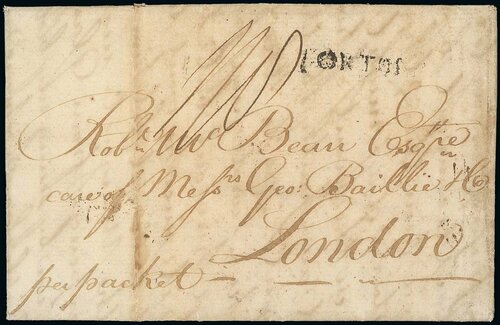 Robt. Mc Bean Esqre
care of Messrs Geo: Baillie & Co
London
per packet